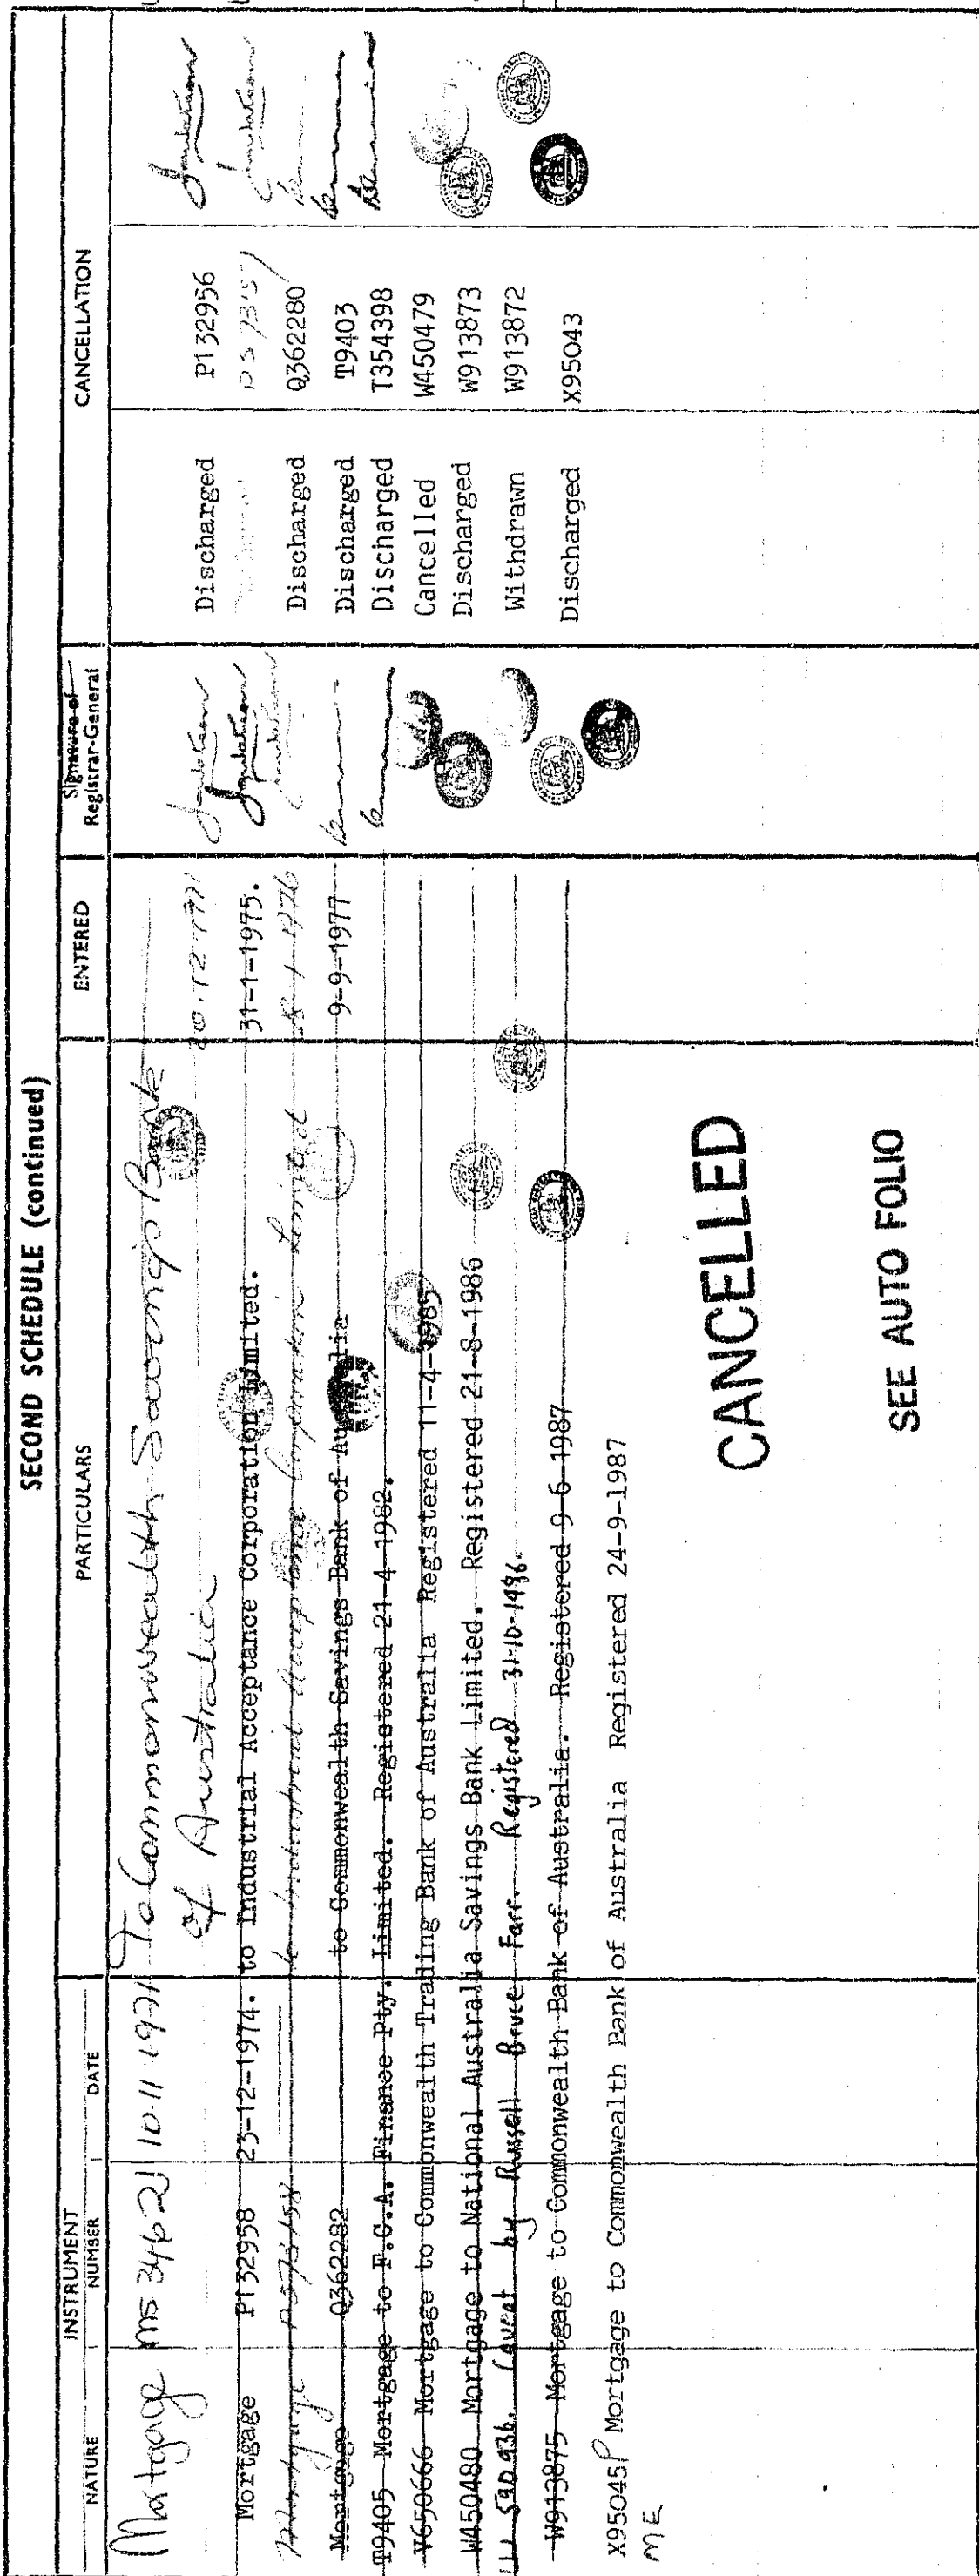 SECOND SCHEDULE (continued)
INSTRUMENT
NATURE NUMBER DATE PARTICULARS ENTERED Signature of Registrar-General CANCELLATION
Mortgage M534621 10.11.1971 To Commonwealth Savings Bank
of Australia 20.12.1971 Discharged P132956
Mortgage P132958 23-12-1974. to Industrial Acceptance Corporation Limited. 31-1-1975.
Mortgage P573158 to Industrial Acceptance Corporation Limited 1976 Discharged Q362280
Mortgage Q362282 to Commonwealth Savings Bank of Australia 9-9-1977 Discharged T9403
T9405 Mortgage to F.C.A. Finance Pty. Limited. Registered 21-4-1982. Discharged T354398
V650666 Mortgage to Commonwealth Trading Bank of Australia Registered 11-4-1985 Cancelled W450479
W450480 Mortgage to National Australia Savings Bank Limited. Registered 21-8-1986 Discharged W913873
W590936. Caveat by Russell Bruce Farr. Registered 31-10-1986. Withdrawn W913872
W913875 Mortgage to Commonwealth Bank of Australia. Registered 9-6-1987 Discharged X95043
X95045P Mortgage to Commonwealth Bank of Australia Registered 24-9-1987
ME
CANCELLED
SEE AUTO FOLIO